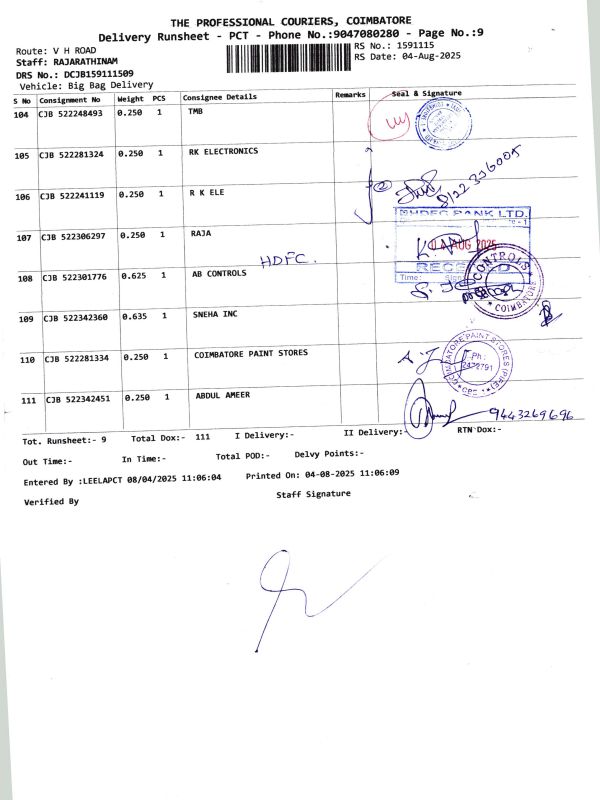 THE PROFESSIONAL COURIERS, COIMBATORE
Delivery Runsheet - PCT - Phone No.:9047080280 - Page No.:9
Route: V H ROAD
RS No.: 1591115
Staff: RAJARATHINAM
RS Date: 04-Aug-2025
DRS No.: DCJB159111509
Vehicle: Big Bag Delivery
S No Consignment No Weight PCS Consignee Details Remarks Seal & Signature
104 CJB 522248493 0.250 1 TMB
105 CJB 522281324 0.250 1 RK ELECTRONICS
106 CJB 522241119 0.250 1 R K ELE
8122 356005
HDFC BANK LTD.
107 CJB 522306297 0.250 1 RAJA
04 AUG 2025
HDFC.
RECEIVED
Time: Sign
108 CJB 522301776 0.625 1 AB CONTROLS
CONTROLS
COIMBATORE
109 CJB 522342360 0.635 1 SNEHA INC
110 CJB 522281334 0.250 1 COIMBATORE PAINT STORES
COIMBATORE PAINT STORES
Ph :
2472791
CBE - 1
111 CJB 522342451 0.250 1 ABDUL AMEER
9443269696
Tot. Runsheet:- 9 Total Dox:- 111 I Delivery:- II Delivery:- RTN Dox:-
Out Time:- In Time:- Total POD:- Delvy Points:-
Entered By :LEELAPCT 08/04/2025 11:06:04 Printed On: 04-08-2025 11:06:09
Verified By Staff Signature